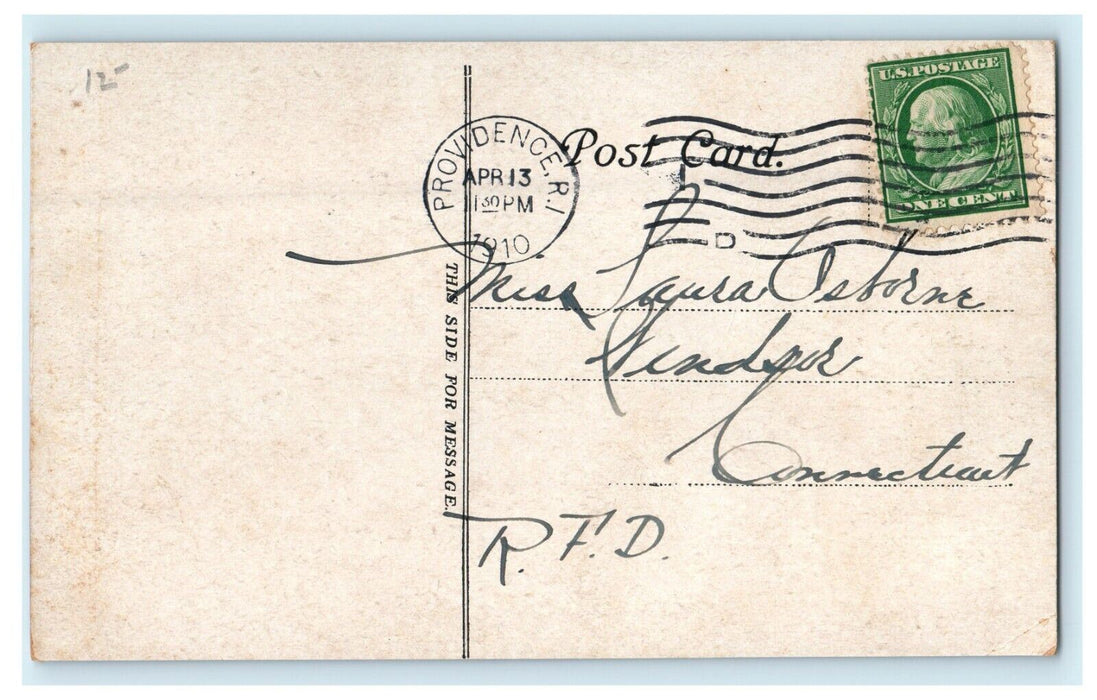 12-
U.S. POSTAGE
Post Card.
PROVIDENCE, R.I
APR 13
130 PM
1910
D
ONE CENT
Miss Laura Osborne
Windsor
Connecticut
R.F.D.
THIS SIDE FOR MESSAGE.